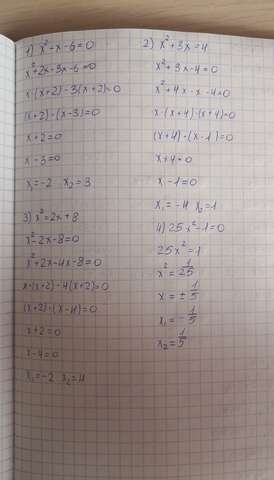 1) x²-x-6=0
x²+2x-3x-6=0
x·(x+2)-3(x+2)=0
(x+2)·(x-3)=0
x+2=0
x-3=0
x₁=-2 x₂=3
3) x²=2x+8
x²-2x-8=0
x²+2x-4x-8=0
x·(x+2)-4(x+2)=0
(x+2)·(x-4)=0
x+2=0
x-4=0
x₁=-2 x₂=4
2) x²+3x=4
x²+3x-4=0
x²+4x-x-4=0
x·(x+4)-(x+4)=0
(x+4)·(x-1)=0
x+4=0
x-1=0
x₁=-4 x₂=1
4) 25x²-1=0
25x²=1
x²=1/25
x=±1/5
x₁=-1/5
x₂=1/5